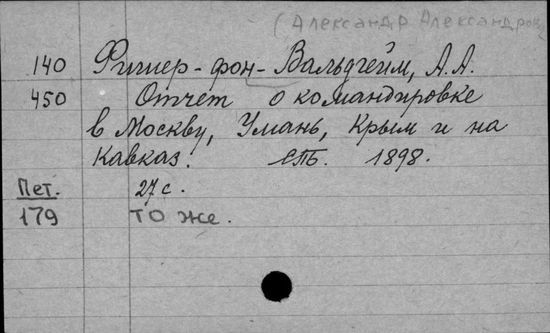 (Александр Александров.
140 Фишер-фон-Вальдгейм, А.А.
450 Отчет о командировке
в Москву, Умань, Крым и на
Кавказ. СПб. 1898.
Пет. 27 с.
179 то же.